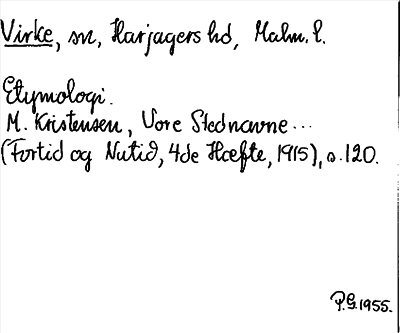 Virke, sn, Harjagers hd, Malm. l.
Etymologi.
M. Kristensen, Vore Stednavne...
(Fortid og Nutid, 4de Hæfte, 1915), s. 120.
P.G. 1955.